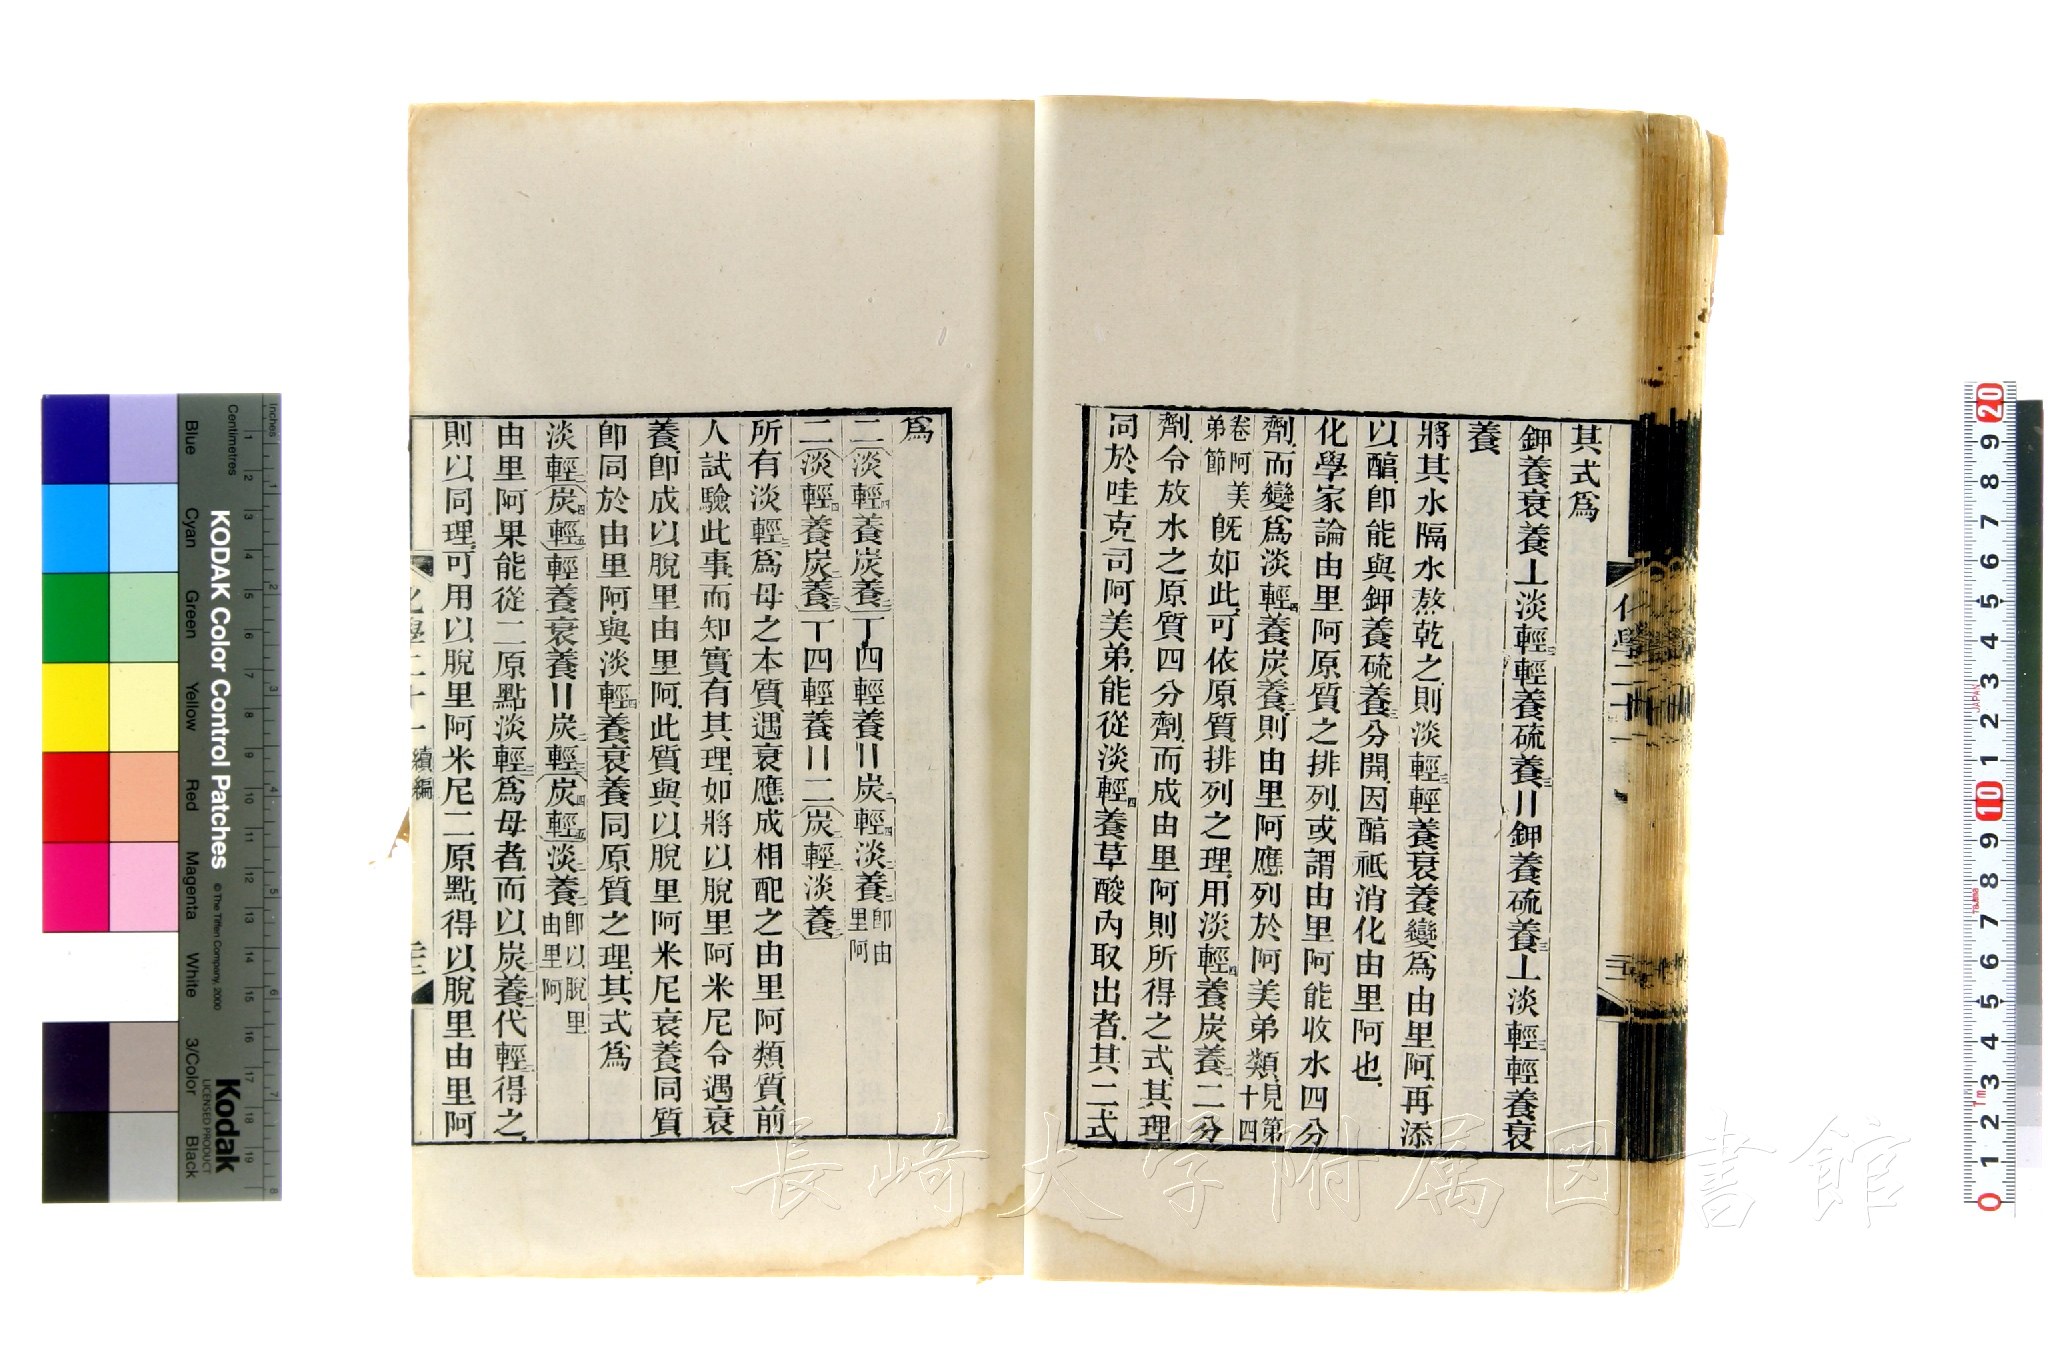 其式爲
鉀養衰養丄淡輕三輕養硫養三〢鉀養硫養三丄淡輕三輕養衰
養
將其水隔水熬乾之則淡輕三輕養衰養變爲由里阿再添
以醕卽能與鉀養硫養三分開因醕祗消化由里阿也
化學家論由里阿原質之排列或謂由里阿能收水四分
劑而變爲淡輕四養炭養二則由里阿應列於阿美弟類見第十四
卷阿美弟節旣如此可依原質排列之理用淡輕四養炭養二二分
劑令放水之原質四分劑而成由里阿則所得之式其理
同於哇克司阿美弟能從淡輕四養草酸內取出者其二式
化學二十一
爲
二(淡輕四養炭養二)丅四輕養〢炭二輕四淡二養二卽由里阿
二(淡輕四養炭養二)丅四輕養〢二(炭輕二淡養)
所有淡輕三爲母之本質遇衰應成相配之由里阿類質前
人試驗此事而知實有其理如將以脫里阿米尼令遇衰
養卽成以脫里由里阿此質與以脫里阿米尼衰養同質
卽同於由里阿與淡輕四養衰養同原質之理其式爲
淡輕二(炭四輕五)輕養衰養〢炭二輕三(炭四輕五)淡二養二卽以脫里由里阿
由里阿果能從二原點淡輕三爲母者而以炭二養二代輕二得之
則以同理可用以脫里阿米尼二原點得以脫里由里阿
化學二十一 續編
Inches
Centimetres
Blue
Cyan
Green
Yellow
Red
Magenta
White
3/Color
Black
KODAK Color Control Patches
© The Tiffen Company, 2000
Kodak
LICENSED PRODUCT
長崎大学附属図書館
JAPAN